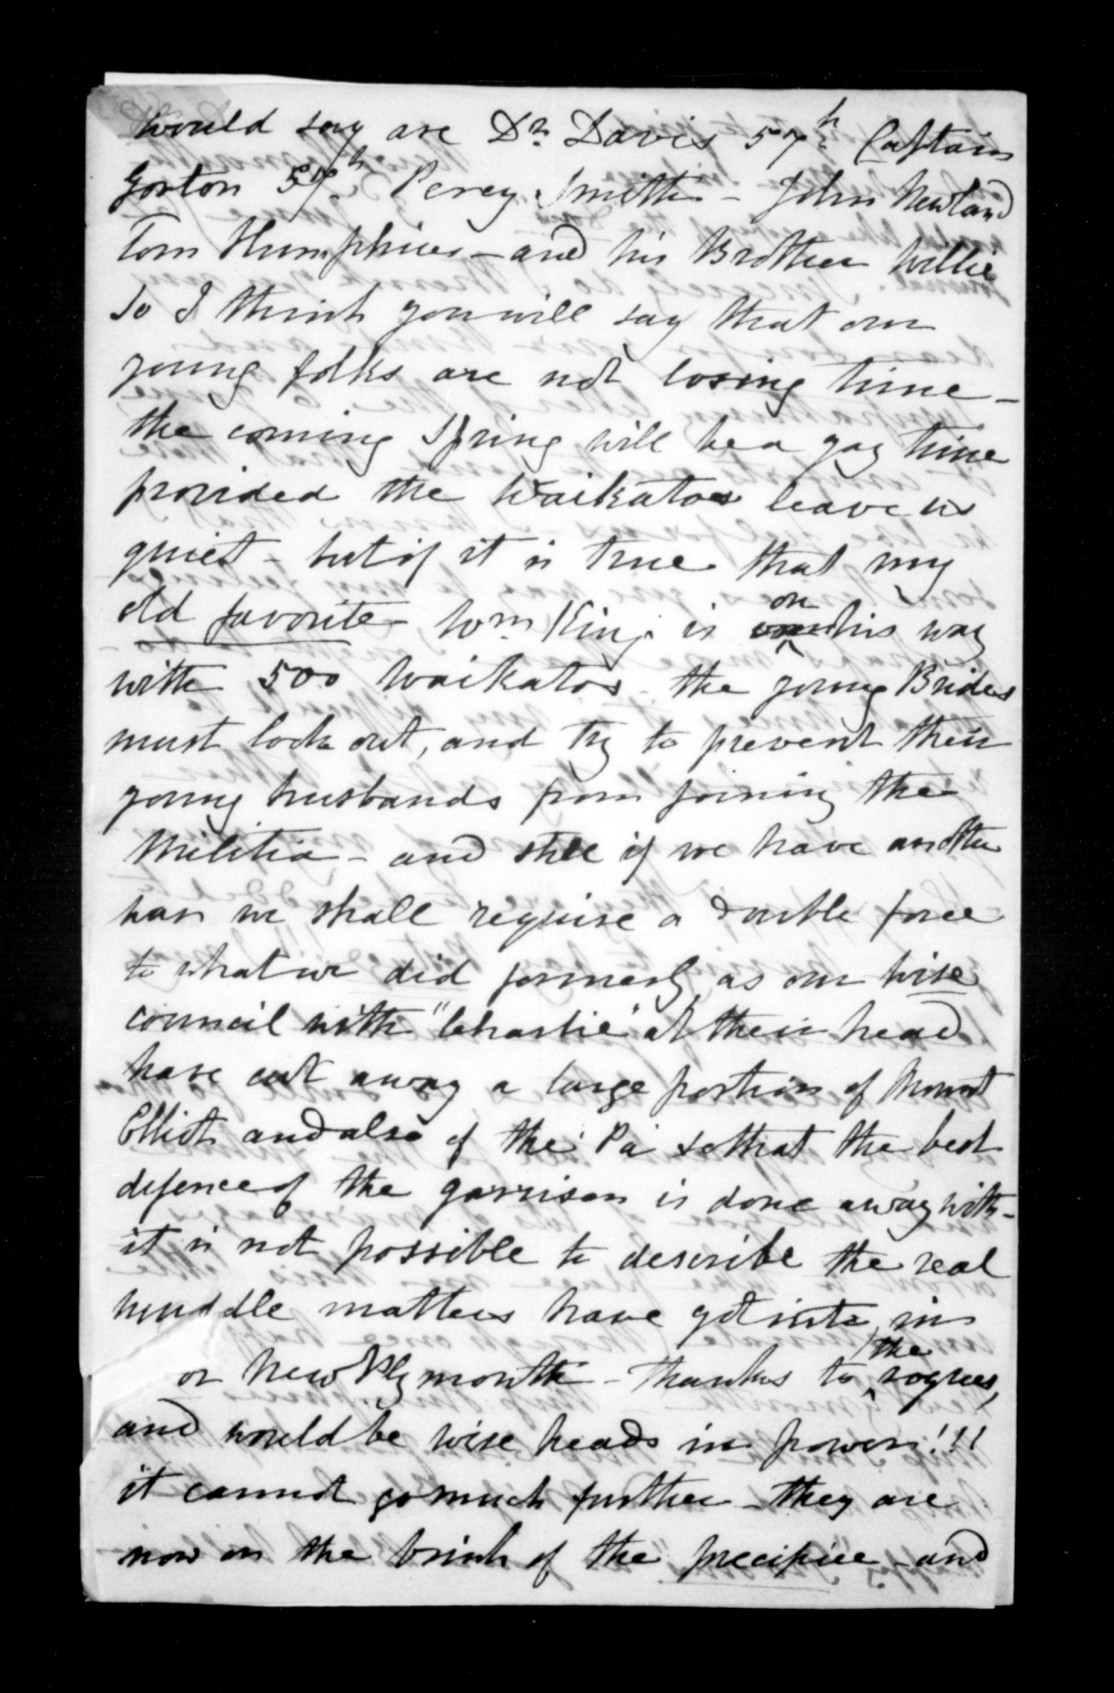 would say are Dr. Davis 57th Captain
Gorton 57th Percy Smith - John Newland
Tom Humphries - and his Brother Willie
So I think you will say that our
young folks are not losing time -
the coming Spring will be a gay time
provided the Waikatos leave us
quiet - but if it is true that my
old favorite Wm King is on his way
with 500 Waikatos - the young Brides
must look out, and try to prevent their
young husbands from joining the
Militia - and still if we have another
war we shall require a double force
to what we did formerly, as our wise
council with "Charlie" at their head
have cut away a large portion of Mount
Elliot and also of the Pa so that the best
defence of the garrison is done away with -
it is not possible to describe the real
muddle matters have got into in
or New Plymouth - thanks to the rogues,
and would be wise heads in power!!!
it cannot go much further - they are
now on the brink of the precipice - and